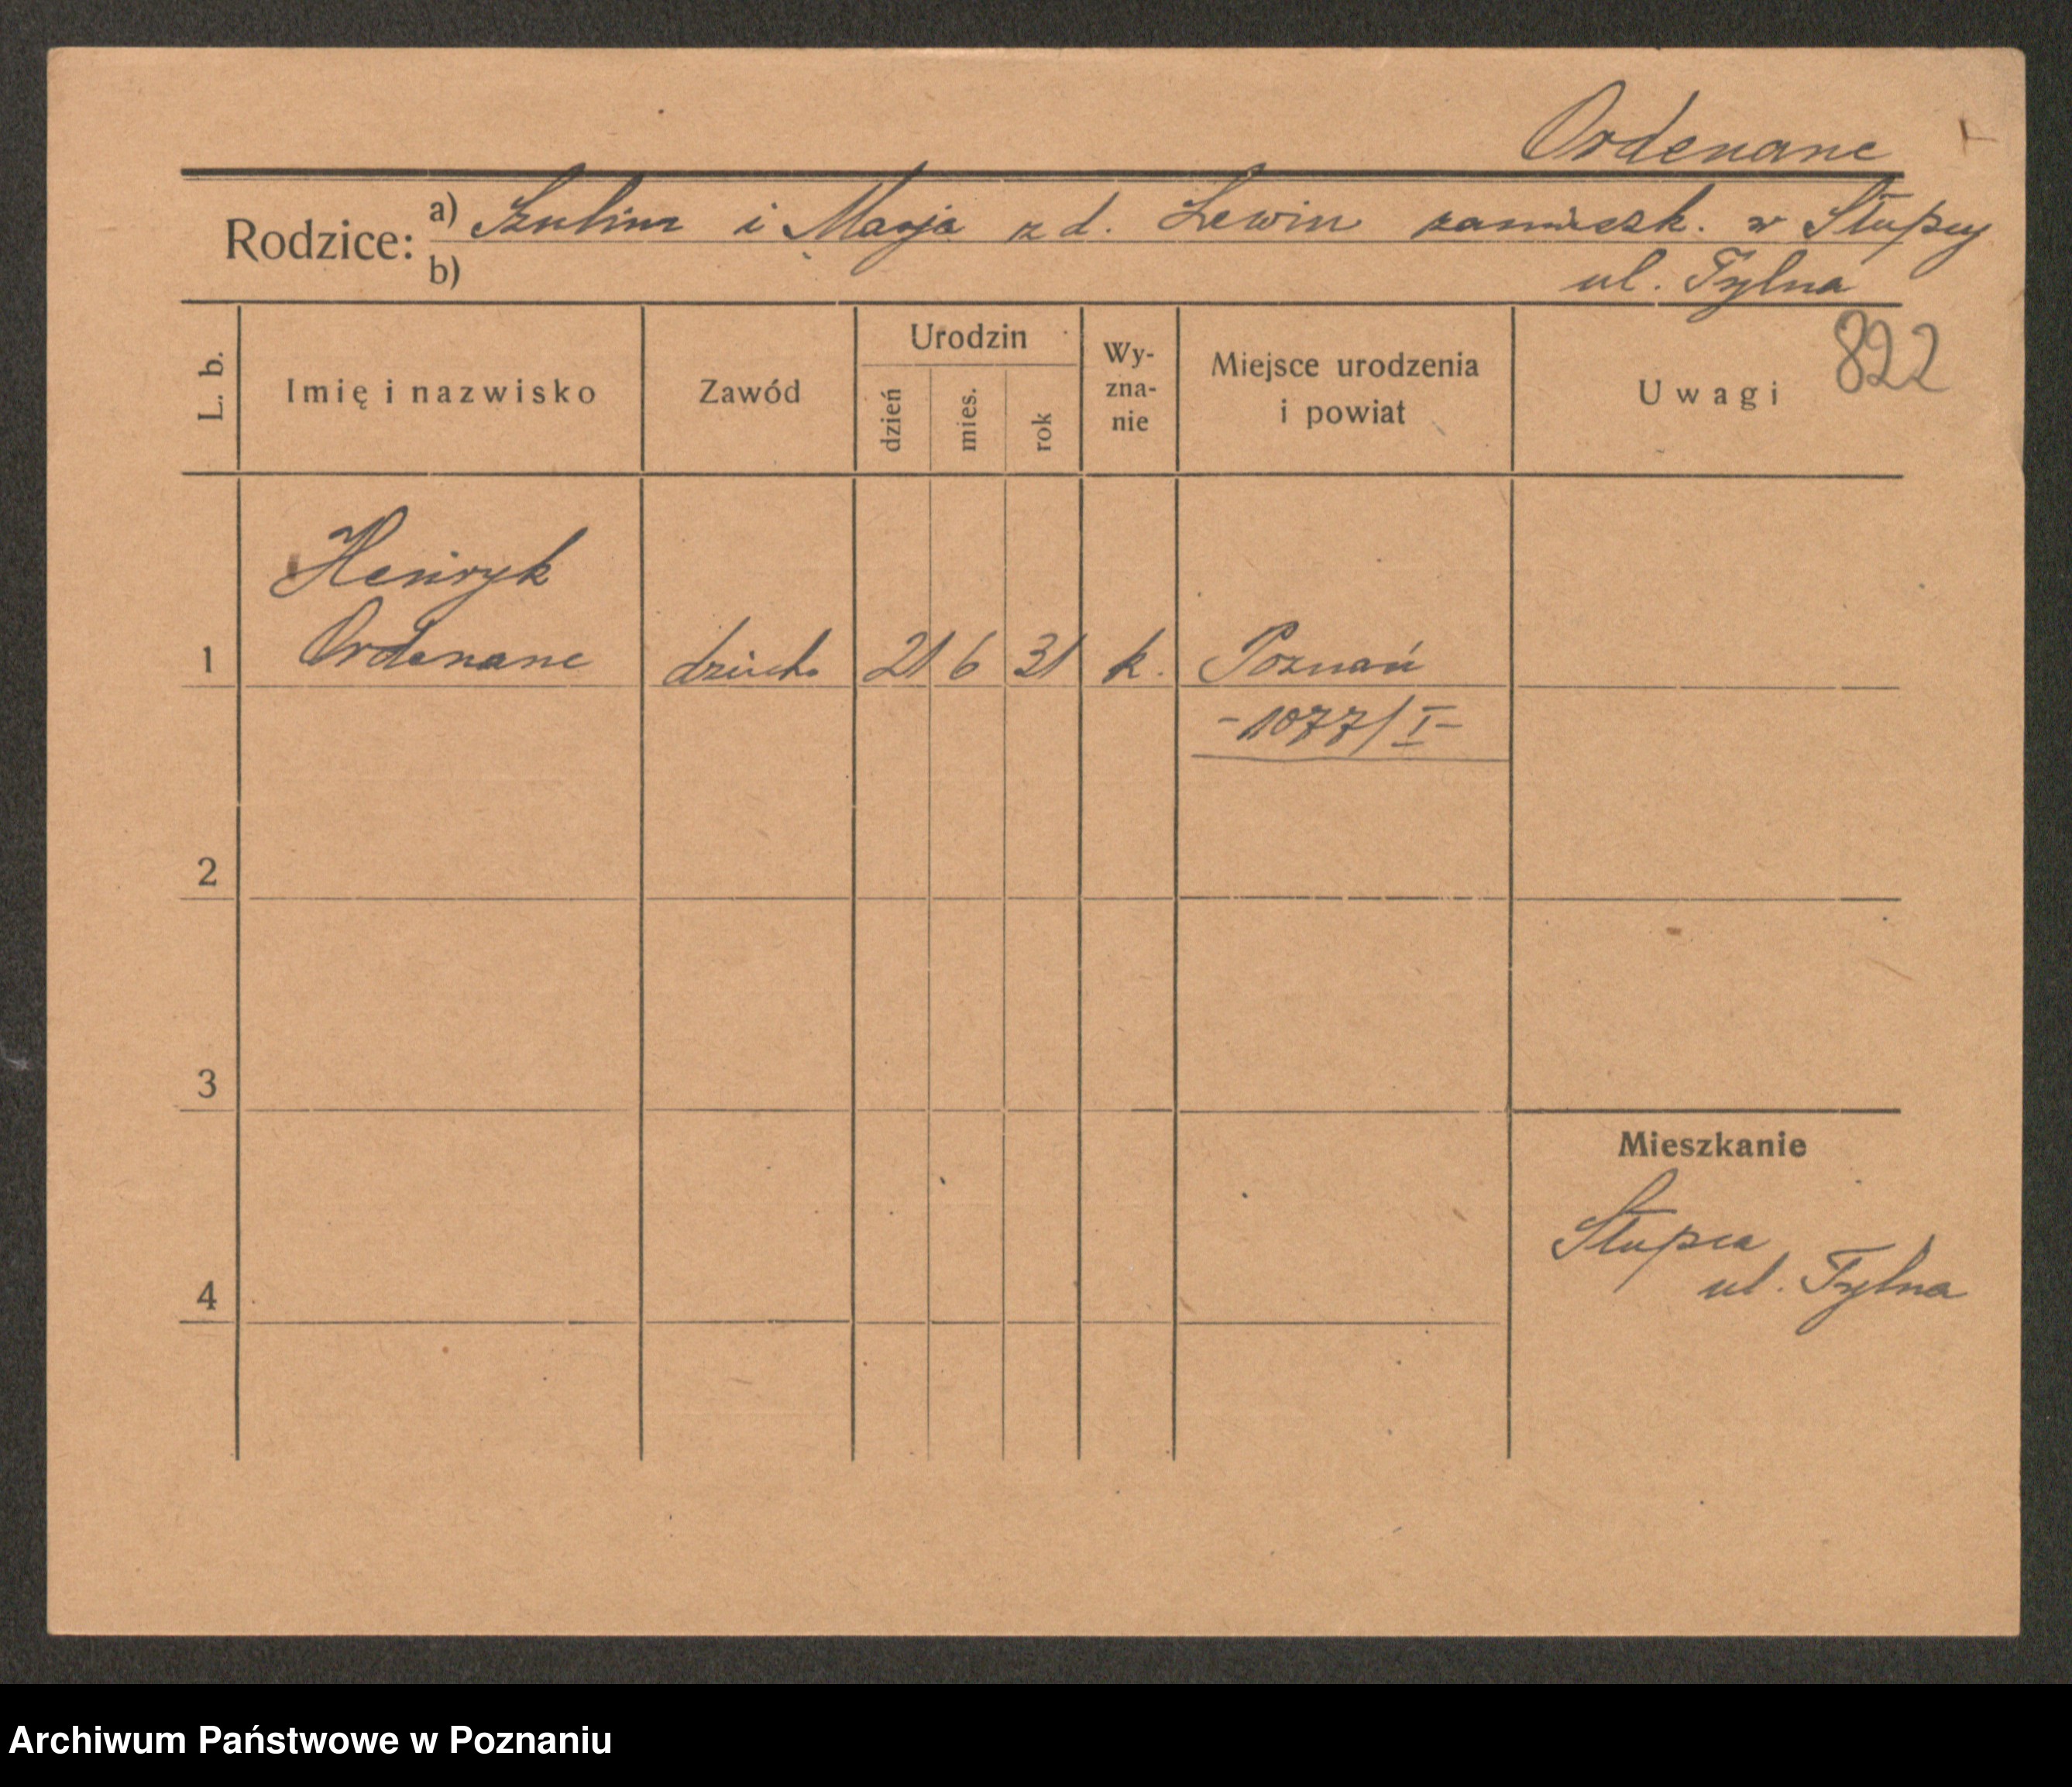 Ordenanc
Rodzice: a) Szulim i Marja z d. Lewin zamieszk. w Słupcy
b) ul. Tylna
822
L. b. Imię i nazwisko Zawód Urodzin dzień mies. rok Wy-zna-nie Miejsce urodzenia i powiat Uwagi
Henryk
1 Ordenanc dziecko 21 6 31 k. Poznań
-1077/I-
2
3
Mieszkanie
Słupca
4 ul. Tylna
Archiwum Państwowe w Poznaniu